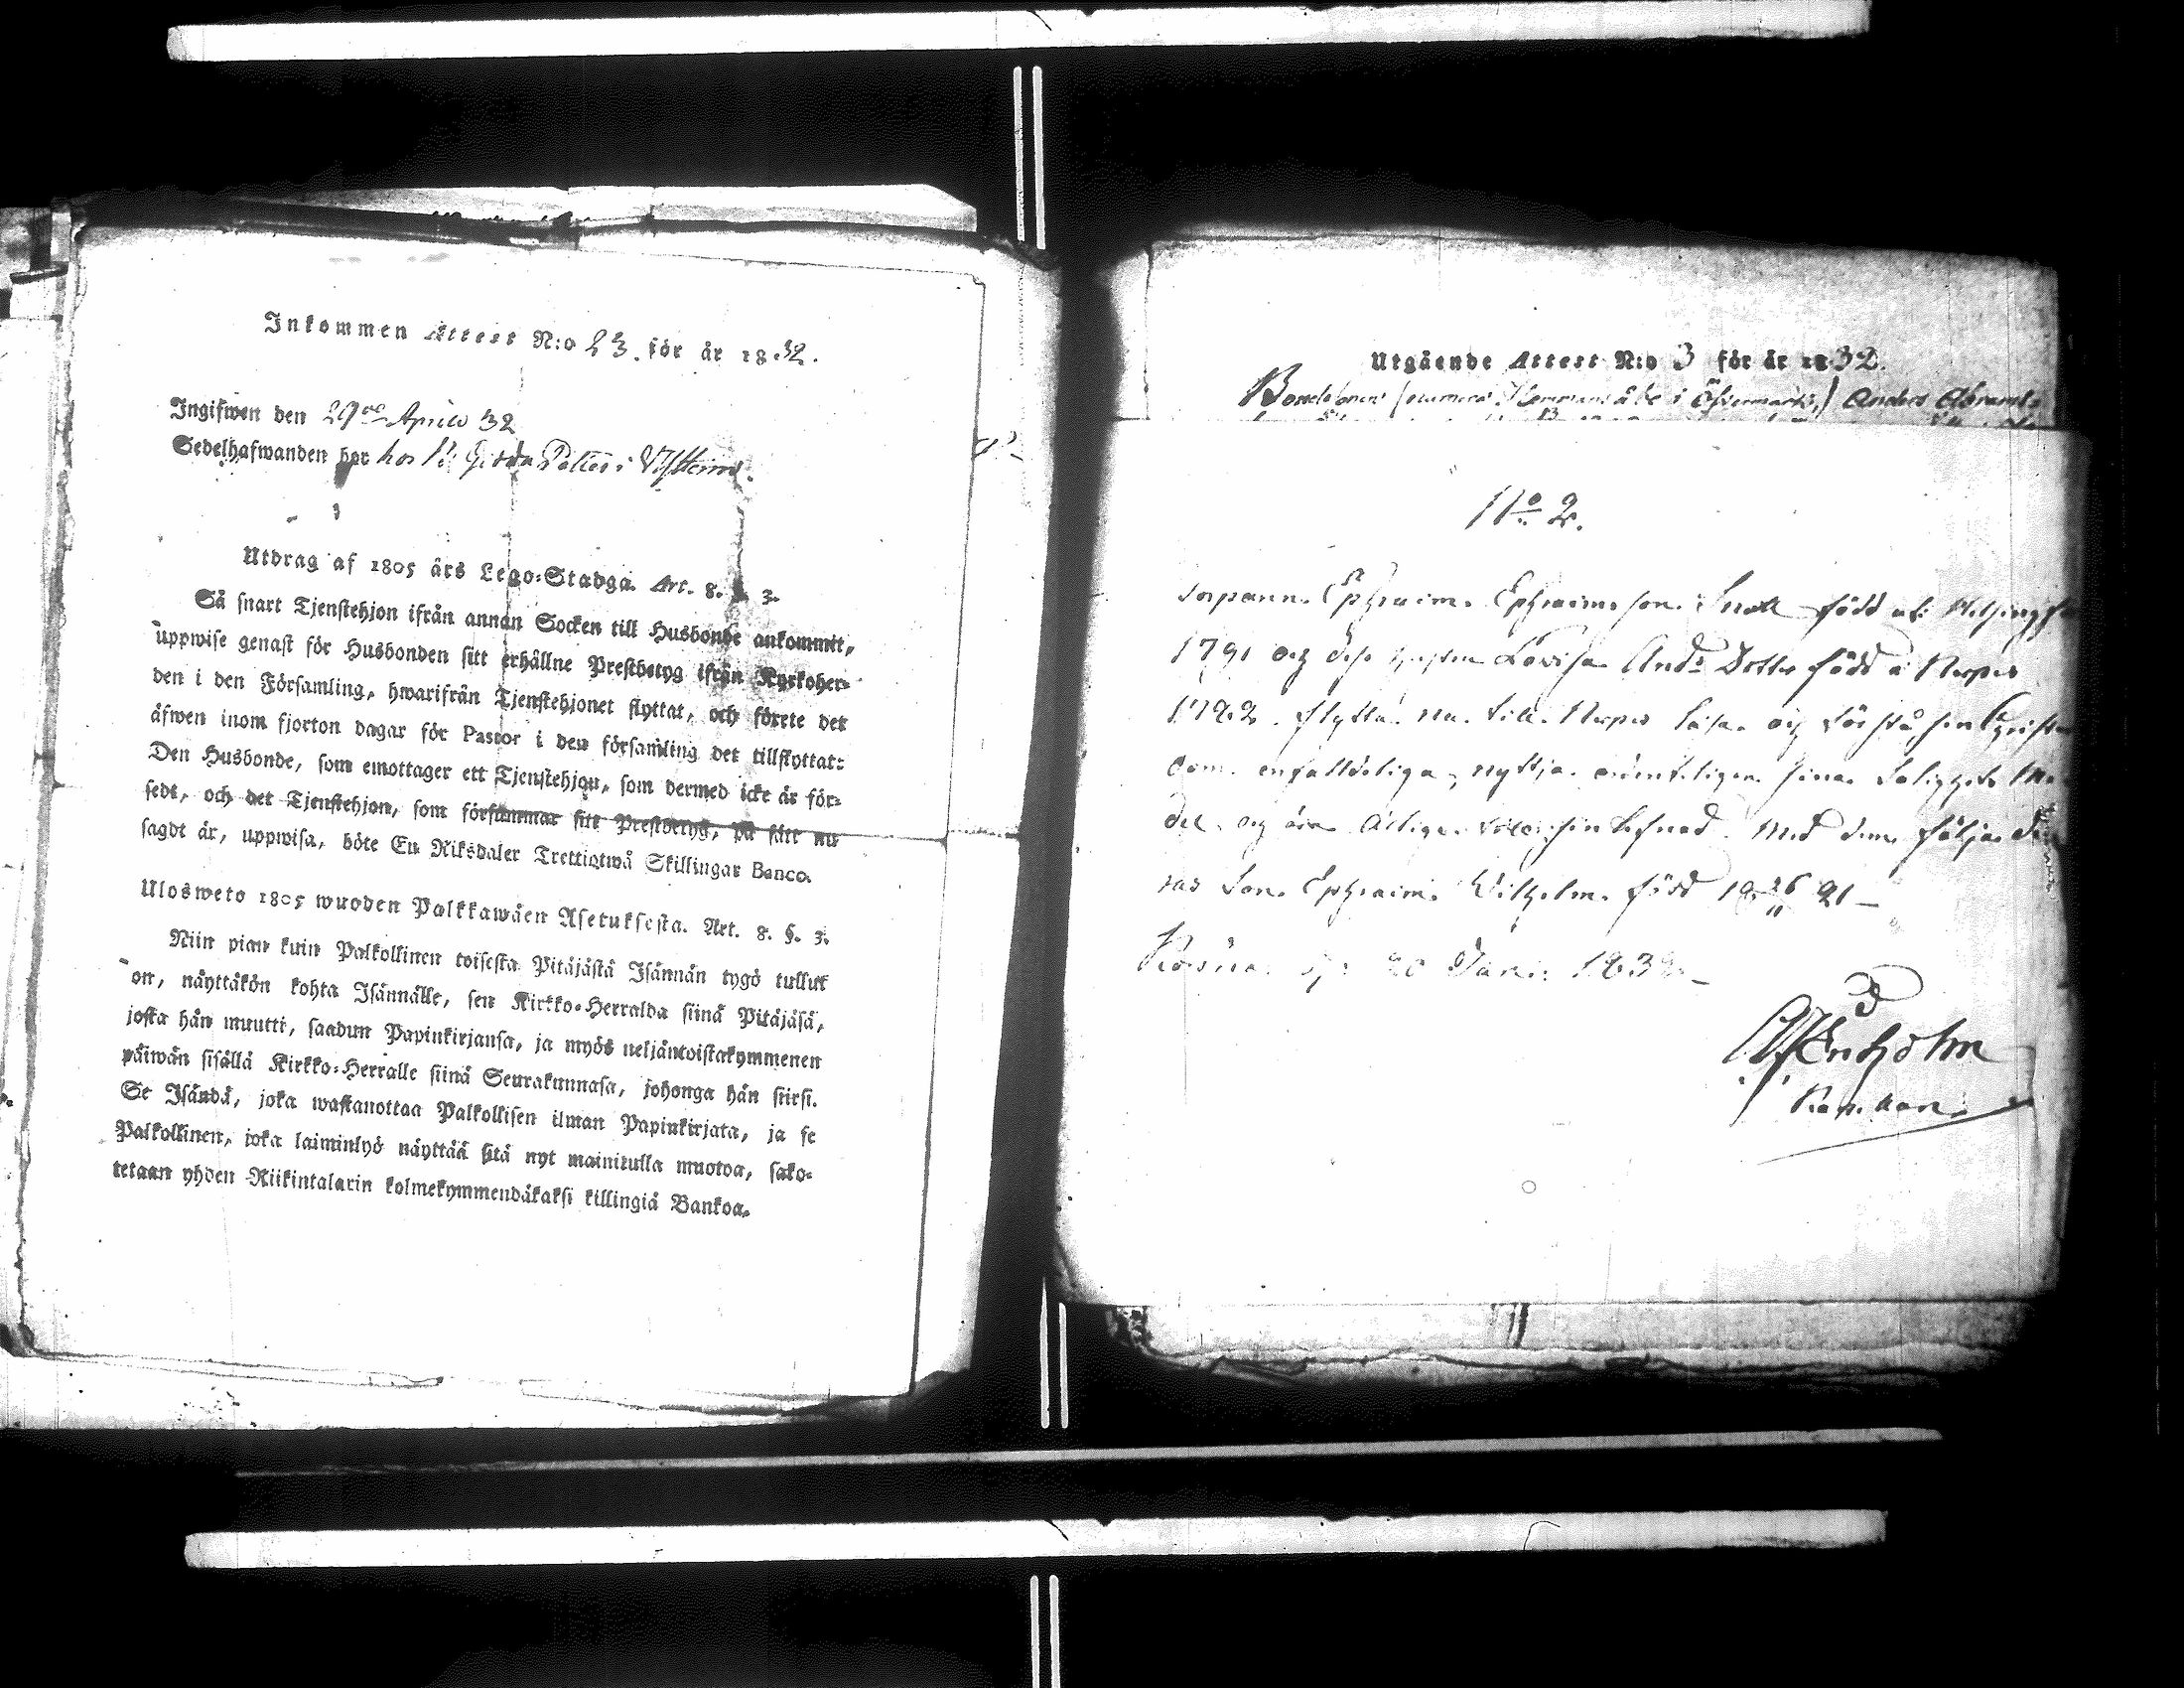 Inkommen Attest N:o 23. för år 1832.
Ingifwen den 29de Aprill 32
Sedelhafwanden har hos
Utdrag af 1805 års Lego-Stadga. Art. 8. §. 3.
Så snart Tjenstehjon ifrån annan Socken till Husbonde ankommit,
uppwise genast för Husbonden sitt erhållne Prestbetyg ifrån Kyrkoher-
den i den Församling, hwarifrån Tjenstehjonet flyttat, och förete det
äfwen inom fjorton dagar för Pastor i den församling det tillflyttat:
Den Husbonde, som emottager ett Tjenstehjon, som dermed icke är för-
sedt, och det Tjenstehjon, som försummar sitt Prestbetyg, på sätt nu
sagdt är, uppwisa, böte En Riksdaler Trettiotwå Skillingar Banco.
Ulosweto 1805 wuoden Palkkawäen Asetuksesta. Art. 8. §. 3.
Niin pian kuin Palkollinen toisesta Pitäjästä Isännän tygö tullut
on, näyttäkön kohta Isännälle, sen Kirkko-Herralda siinä Pitäjäsä,
josta hän muutti, saadun Papinkirjansa, ja myös neljäntoistakymmenen
päiwän sisällä Kirkko-Herralle siinä Seurakunnasa, johonga hän siirsi.
Se Isändä, joka wastanottaa Palkollisen ilman Papinkirjata, ja se
Palkollinen, joka laiminlyö näyttää sitä nyt mainitulla muotoa, sako-
tetaan yhden Riikintalarin kolmekymmendäkaksi killingiä Bankoa.
Utgående Attest N:o 3 för år 1832.
Bondesonen i Östermark, Anders Abramss
No 2.
Ephraim Ephraimsson Snäll född
1791 och dess hustru Lovisa Ands Dotter född i Nerpes
1782. flytta nu till Nerpes läsa och förstå sin Christen
dom enfalldeliga, nyttja ordenteligen sina Salighets Me
del, och äro ärlige till sin lefnad. Med dem följer de
ras Son Ephraim Wilhelm född 18 26/11 21 —
d. 20 Jan: 1832 —